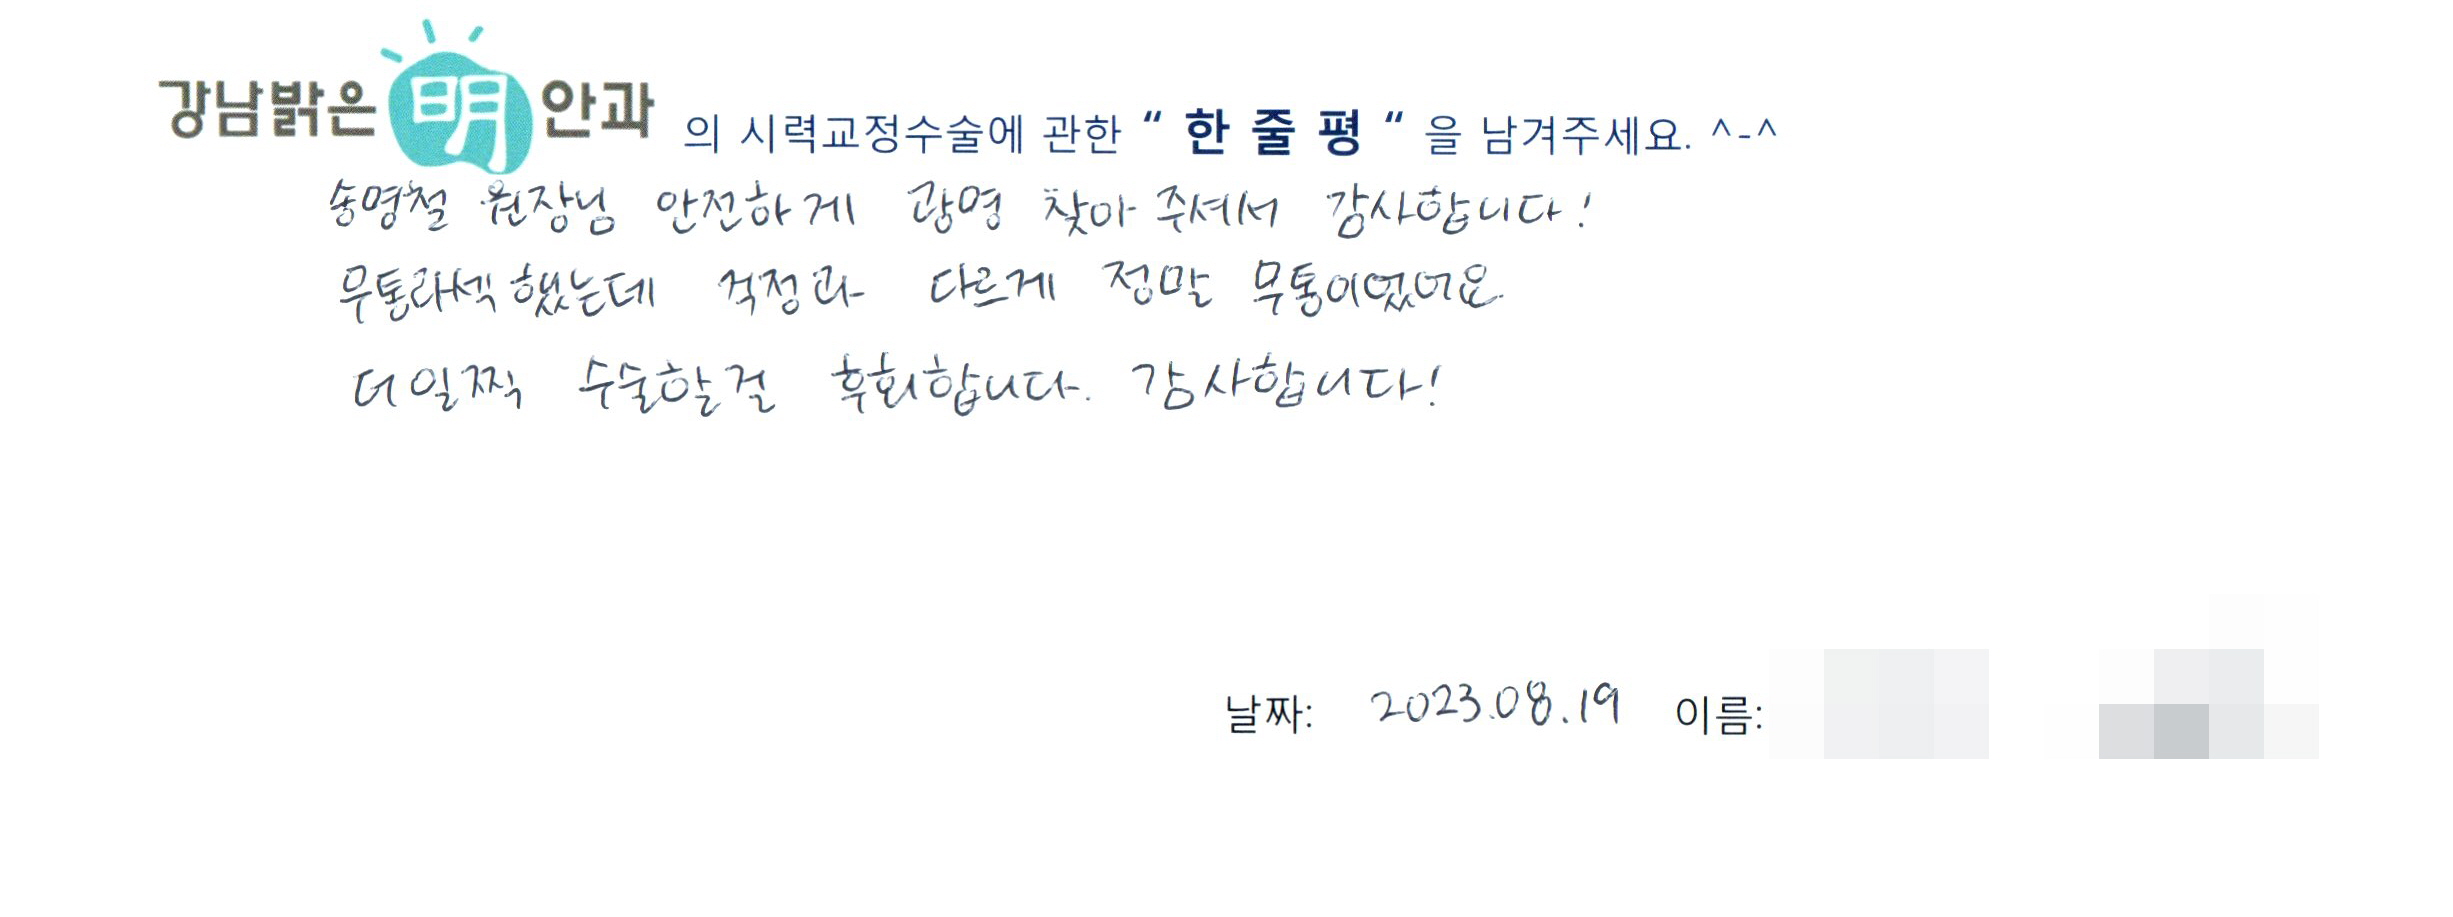 강남밝은明안과 의 시력교정수술에 관한 “ 한 줄 평 “ 을 남겨주세요. ^-^
송명철 원장님 안전하게 광명 찾아 주셔서 감사합니다!
무통라섹 했는데 걱정과 다르게 정말 무통이었어요.
더 일찍 수술할걸 후회합니다. 감사합니다!
날짜: 2023.08.19 이름: